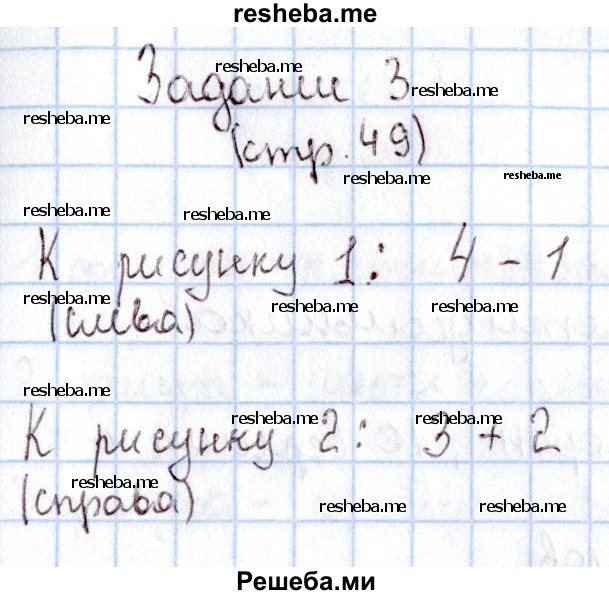 resheba.me
resheba.me
Задание 3 resheba.me
resheba.me
(стр. 49)
resheba.me resheba.me
resheba.me resheba.me
К рисунку 1: 4 - 1
resheba.me resheba.me resheba.me
(слева)
resheba.me
resheba.me resheba.me
К рисунку 2: 3 + 2
resheba.me
(справа) resheba.me resheba.me
Решеба.ми